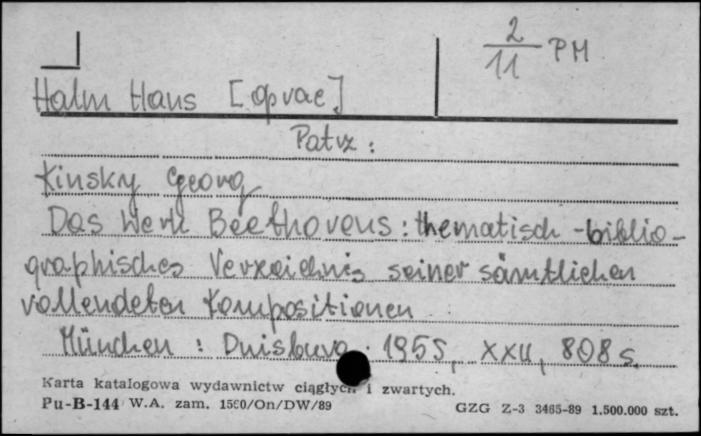 2/11 PM
Halm Hans [oprac]
Patrz:
Kinsky Georg
Das Werk Beethovens: thematisch-biblio-
graphisches Verzeichnis seiner sämtlichen
vollendeten Kompositionen
München: Duisburg. 1955, XXII, 808 s.
Karta katalogowa wydawnictw ciągłych i zwartych.
Pu-B-144 W.A. zam. 1560/On/DW/89 GZG Z-3 3465-89 1.500.000 szt.